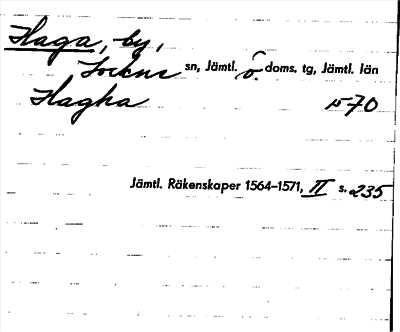 Haga, by,
Lockne sn, Jämtl. ö. doms. tg, Jämtl. län
Hagha 1570
Jämtl. Räkenskaper 1564–1571, II s. 235